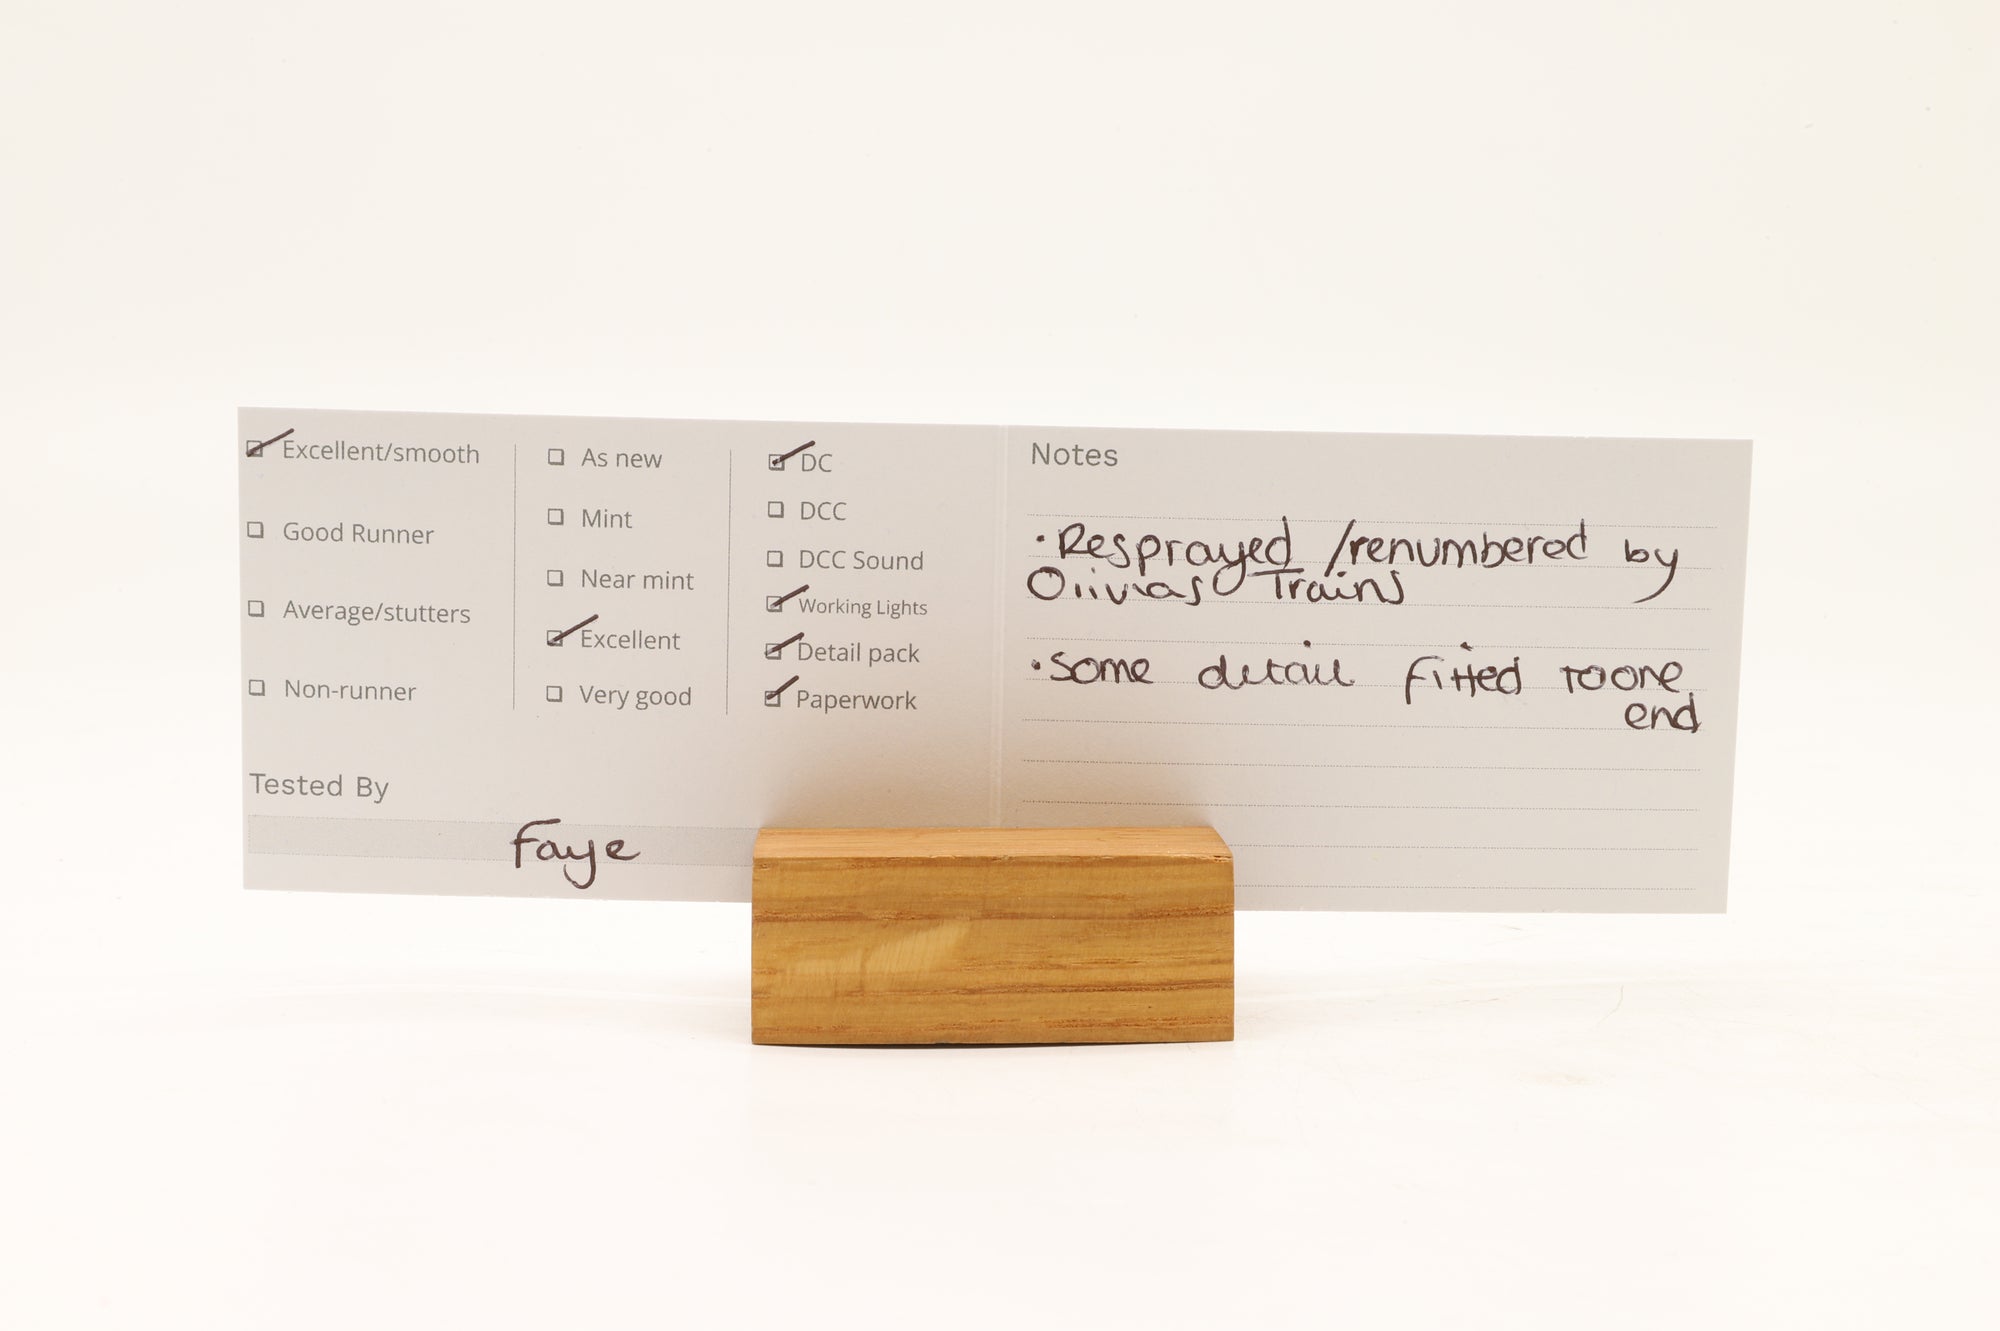 Excellent/smooth
Good Runner
Average/stutters
Non-runner
As new
Mint
Near mint
Excellent
Very good
DC
DCC
DCC Sound
Working Lights
Detail pack
Paperwork
Tested By
Faye
Notes
• Resprayed /renumbered by
Olivias Trains
• Some detail fitted to one
end